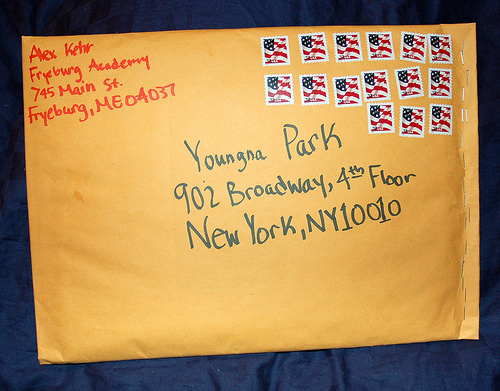 Alex Kehr
Fryeburg Academy
745 Main St.
Fryeburg, ME 04037
Youngna Park
902 Broadway, 4th Floor
New York, NY 10010